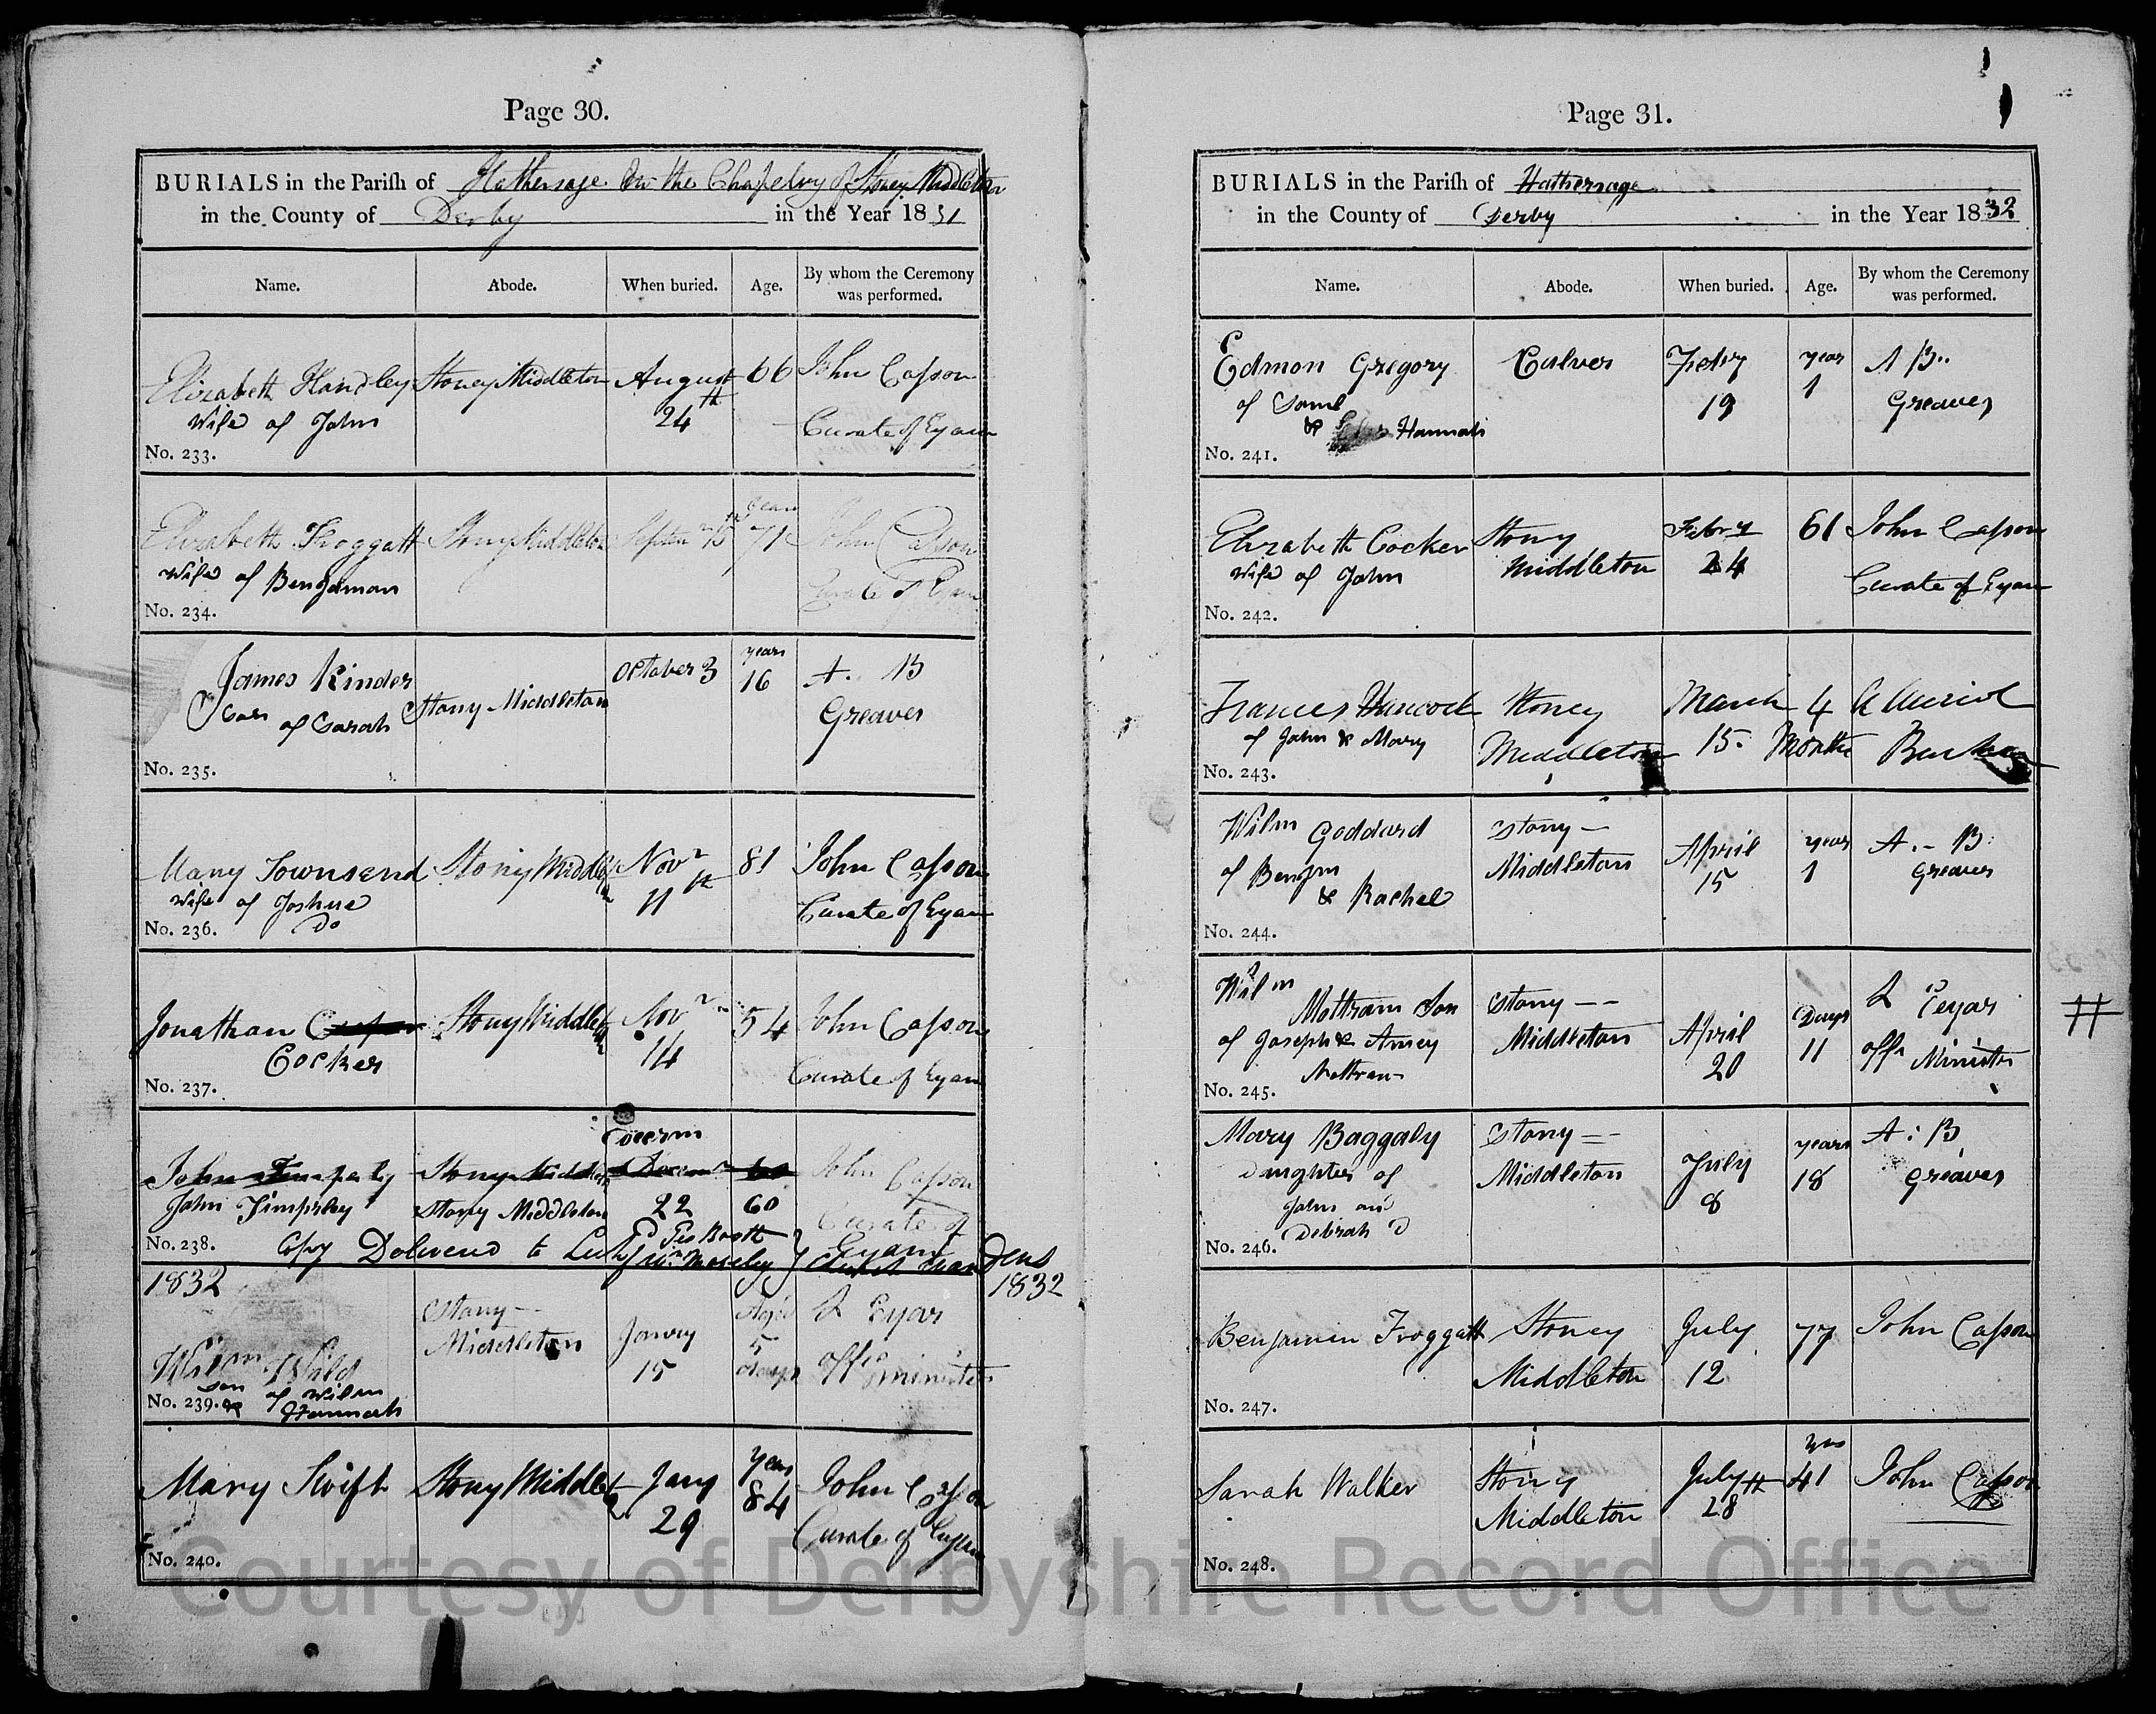 Page 30.
BURIALS in the Parish of Hathersage In the Chapelry of Stoney Middleton
in the County of Derby in the Year 1831
Name. Abode. When buried. Age. By whom the Ceremony was performed.
Elizabeth Handley Stoney Middleton August 66 John Casson
wife of John 24th Curate of Eyam
No. 233.
Elizabeth Froggatt Stony Middleton Septem 15th years 71 John Casson
wife of Bengaman Curate of Eyam
No. 234.
James Kinder Stony Middleton October 3 years 16 A. B
Son of Sarah Greaves
No. 235.
Mary Townsend Stony Middleton Novr 81 John Casson
wife of Joshua 11th Curate of Eyam
Do
No. 236.
Jonathan Stony Middleton Novr 54 John Casson
Cocker 14 Curate of Eyam
No. 237.
Decem
John Timperley Stony Middleton Decemr 60 John Casson
John Timperley Stony Middleton 22 60 Curate of
No. 238. Copy Deliverd to Eyam
1832 1832
Stony Aged
Middleton Janry 5 Eyar
Wilm Wild 15 days offg minister
son of Wilm
No. 239. & Hannah
Mary Swift Stony Middleton Jany years 84 John Casson
29 Curate of Eyam
No. 240.
Page 31.
BURIALS in the Parish of Hathersage
in the County of Derby in the Year 1832
Name. Abode. When buried. Age. By whom the Ceremony was performed.
Edmon Gregory Calver Febry year A B..
of Saml 19 1 Greaves
& Hannah
No. 241.
Elizabeth Cocker Stony Febry 61 John Casson
wife of John Middleton 24 Curate of Eyam
No. 242.
Frances Hancock Stoney March 4
of John & Mary Middleton 15. Months
No. 243.
Wilm Goddard Stony — April year A.- B.
of Bengm Middleton 15 1 Greaves
& Rachel
No. 244.
Wilm Mottram Son Stony -- April Days
of Joseph & Amey Middleton 20 11 offg Minister
Mottram
No. 245.
Mary Baggaly Stony July years A: B
Daughter of Middleton 8 18 Greaves
John and
Debrah D
No. 246.
Benjamin Froggatt Stoney July 77 John Casson
Middleton 12
No. 247.
Sarah Walker Stoney July yrs 41 John Casson
Middleton 28th
No. 248.
Courtesy of Derbyshire Record Office